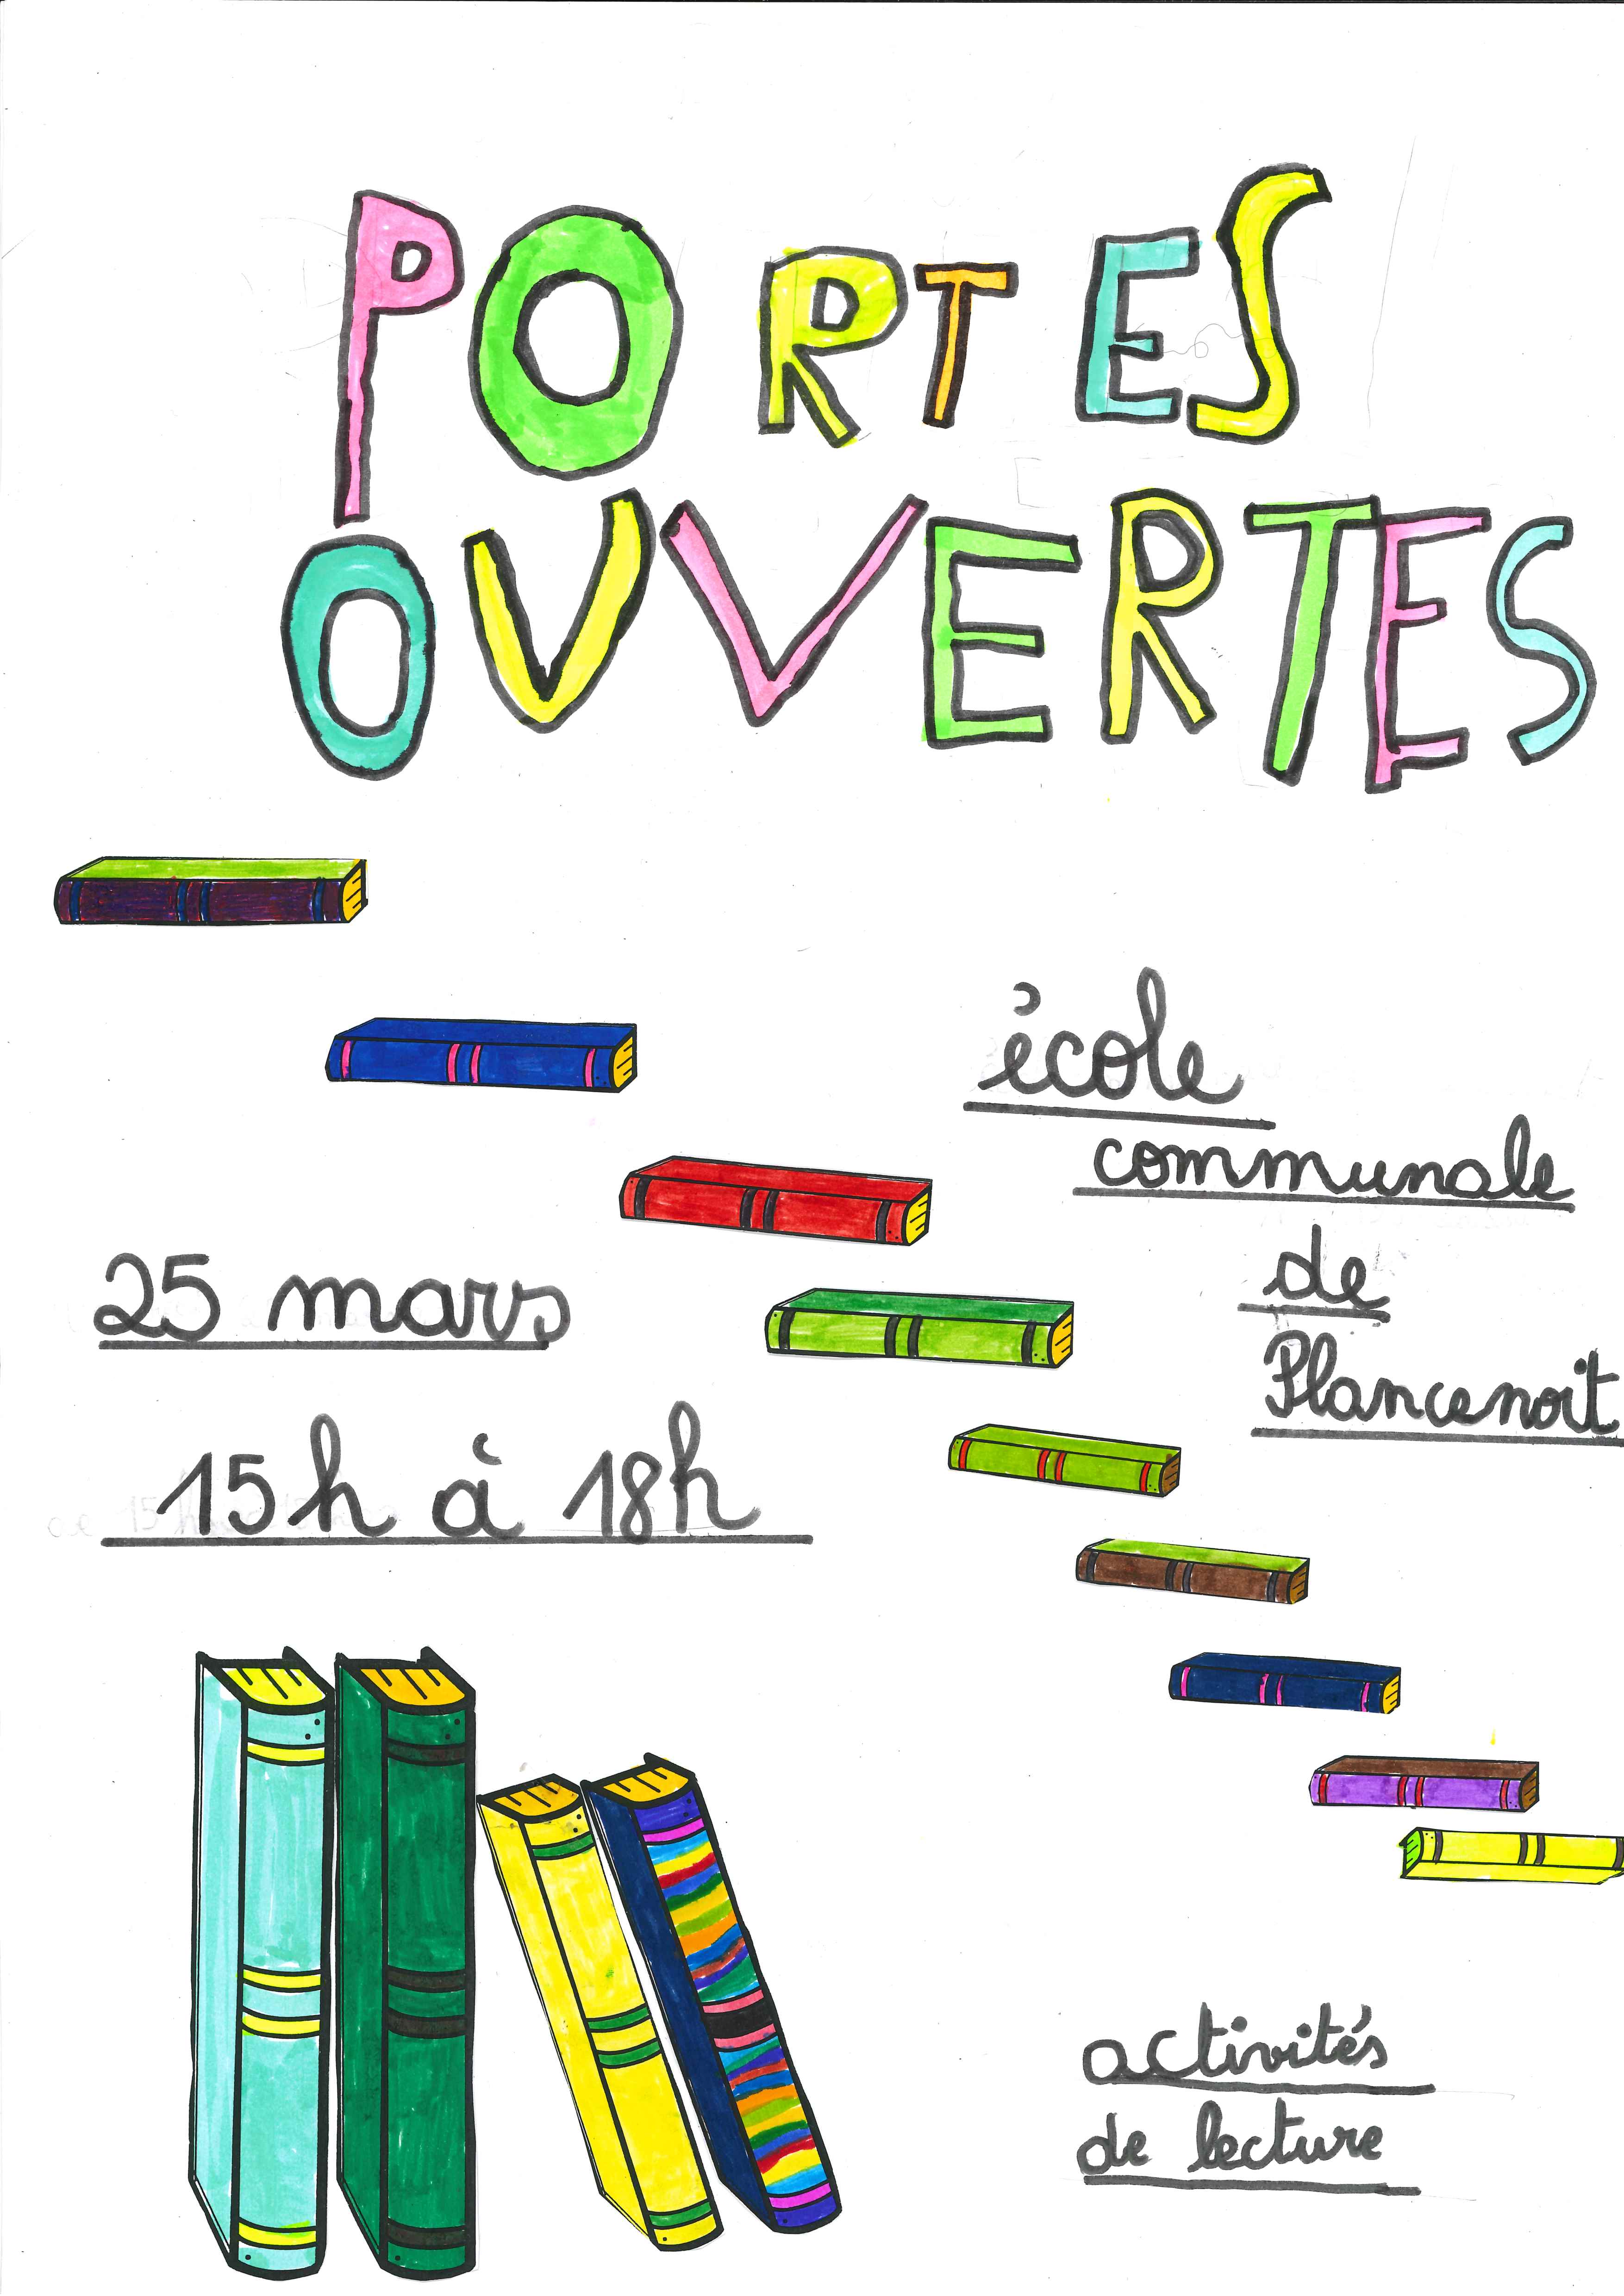 PORTES
OUVERTES
école
communale
de
Plancenoit
25 mars
15h à 18h
activités
de lecture